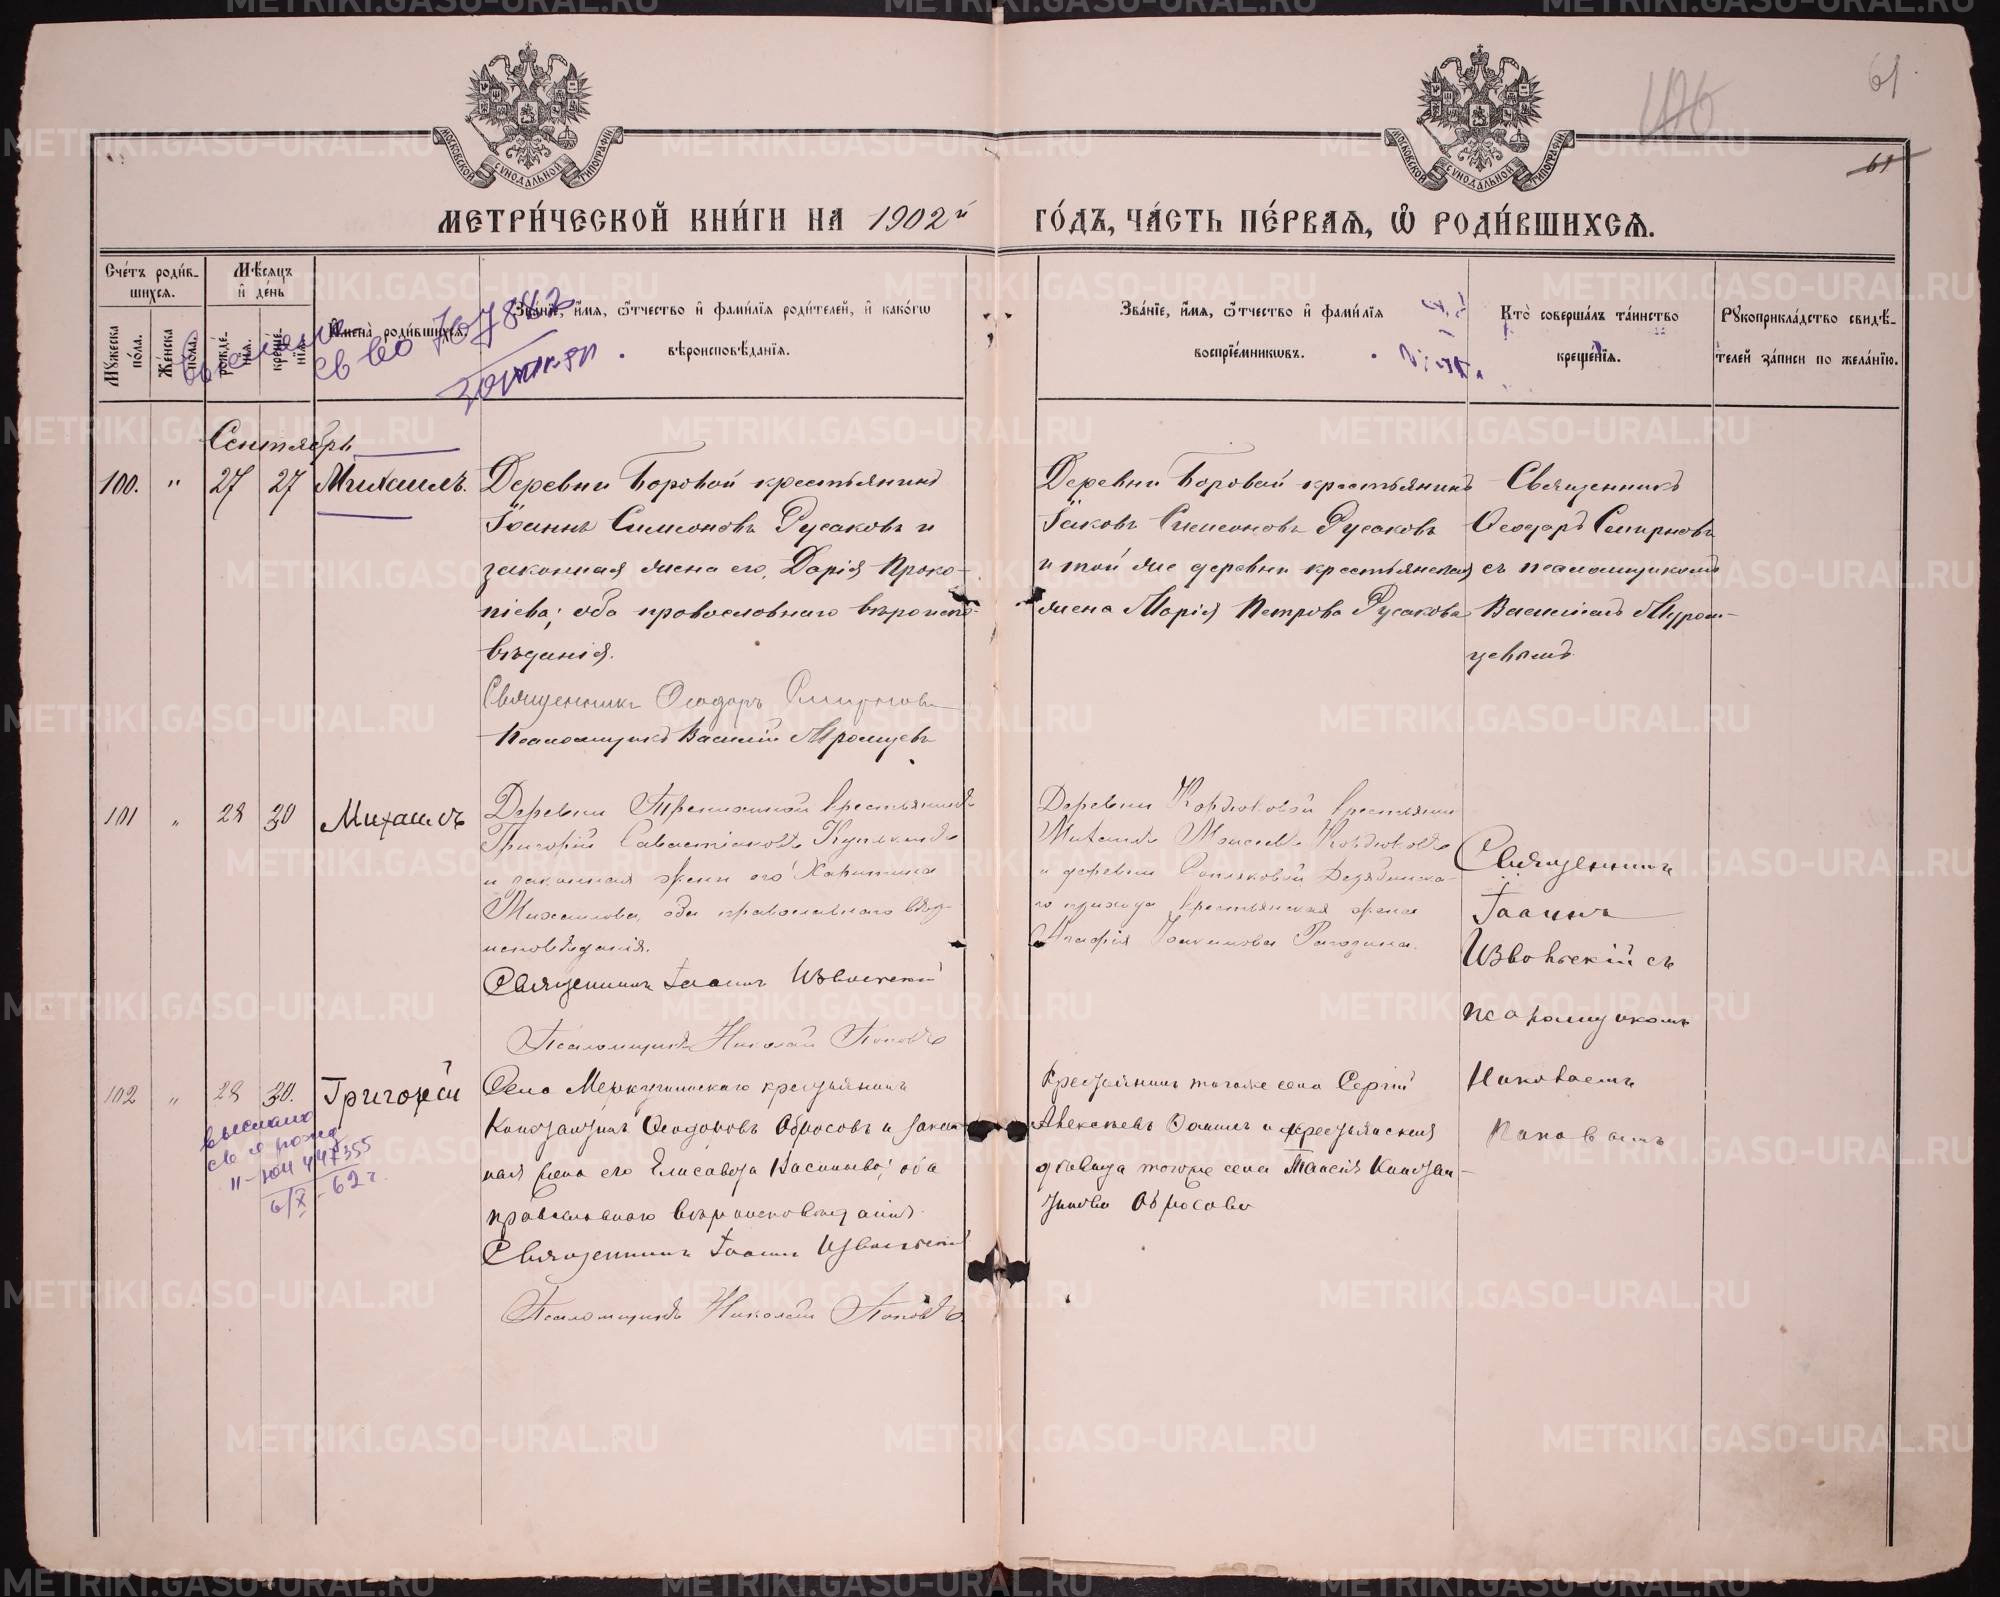 61
61
МОСКОВСКОЙ СѴНОДАЛЬНОЙ ТИПОГРАФІИ
МОСКОВСКОЙ СѴНОДАЛЬНОЙ ТИПОГРАФІИ
МЕТРИ́ЧЕСКОЙ КНИ́ГИ НА 1902й ГО́ДЪ, ЧА́СТЬ ПЕ́РВАЯ, Ѽ РОДИ́ВШИХСЯ.
Сче́тъ роди́в-
шихся.
Мꙋжеска по́ла.
Же́нска по́ла.
Мѣ́сяцъ
и҆ де́нь
рожде́-
нїя.
креще́-
нїя.
И҆мена̀ роди́вшихся.
Зва́нїе, и҆́мя, ѻ҆́тчество и҆ фами́лїя роди́телей, и҆ како́гѡ
вѣроисповѣ́данїя.
Зва́нїе, и҆́мя, ѻ҆́тчество и҆ фами́лїя
воспрїе́мникѡвъ.
Кто̀ соверша́лъ та́инство
креще́нїя.
Рꙋкоприкла́дство свидѣ́-
телей за́писи по жела́нїю.
Сентябрь
100. " 27 27 Михаилъ.
Деревни Боровой крестьянинъ
Іоаннъ Симеоновъ Русаковъ и
законная жена его, Дарія Проко-
піева; оба православнаго вѣроиспо-
вѣданія.
Священникъ Ѳеодоръ Смирновъ
Псаломщикъ Василій
Деревни Боровой крестьянинъ
Іаковъ Симеоновъ Русаковъ
и той же деревни крестьянская
жена Марія Петрова Русакова
Священникъ
Ѳеодоръ Смирновъ
съ псаломщикомъ
Василіемъ
101 " 28 30 Михаилъ
Деревни крестьянинъ
Григорій
и законная жена его Харитина
Михаилова, оба православнаго вѣро-
исповѣданія.
Священникъ Іоаннъ Извольскій
Псаломщикъ Николай Поповъ
Деревни Кордюковой крестьянинъ
Михаилъ Моисеевъ Кордюковъ
и деревни
го прихода крестьянская жена
Агафія Іоакимова Рагозина.
Священникъ
Іоаннъ
Извольскій съ
псаломщикомъ
Николаемъ
Поповымъ
102 " 28 30. Григорій
Села Меркушинскаго крестьянинъ
Константинъ Ѳеодоровъ Обросовъ и закон-
ная жена его Елисавета Васильева; оба
православнаго вѣроисповѣданія.
Священникъ Іоаннъ Извольскій
Псаломщикъ Николай Поповъ
Крестьянинъ тогоже села Сергій
Алексѣевъ и крестьянская
дѣвица тогоже села Таисія Констан-
тинова Обросова
выслано
св о рожд
II-ЮЦ 447355
6/X-62 г.
METRIKI.GASO-URAL.RU